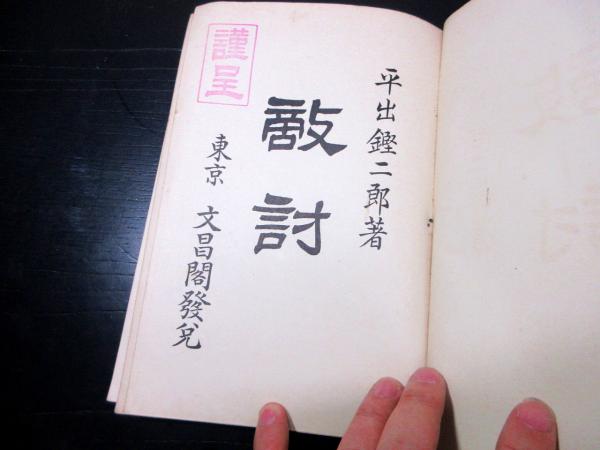 平出鏗二郎著
敵討
東京 文昌閣發兌
謹呈